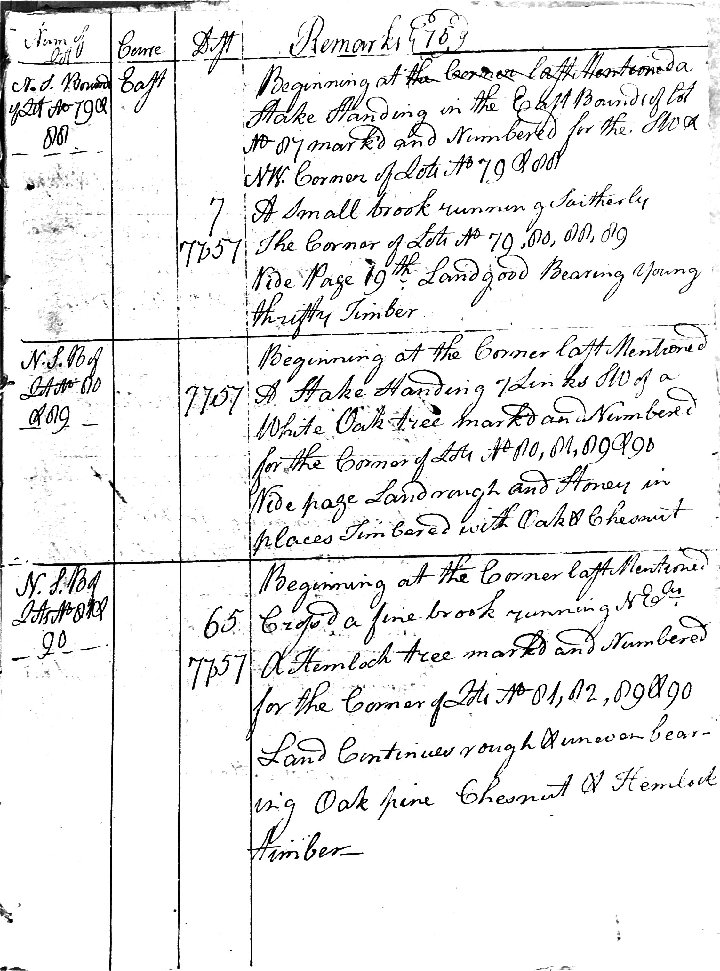 Num of Lott Corse Dist Remarks (75)
N. S. Bounds East Beginning at the Corner last Mentiond a
of Lots No 79 & Stake Standing in the East Bounds of lot
88 No 87 markd and Numbered for the SW &
NW. Corner of Lots No 79 & 88
7 A Small brook running Sutherly
77,57 The Corner of Lots No 79, 80, 88, 89
Vide Page 19th Land good Bearing Young
thrifty Timber
N. S. B of Beginning at the Corner last Mentioned
Lots No 80 77,57 A Stake Standing 7 Links SW of a
& 89 White Oak tree markd and Numbered
for the Corner of Lots No 80, 81, 89 & 90
Vide page Land rough and Stoney in
places Timbered with Oak & Chesnut
N. S. B of Beginning at the Corner last Mentioned
Lots No 81 & 65 Crossd a fine brook running
90 77,57 A Hemlock tree markd and Numbered
for the Corner of Lots No 81, 82, 89 & 90
Land Continues rough & uneven bear-
ing Oak pine Chesnut & Hemlock
timber